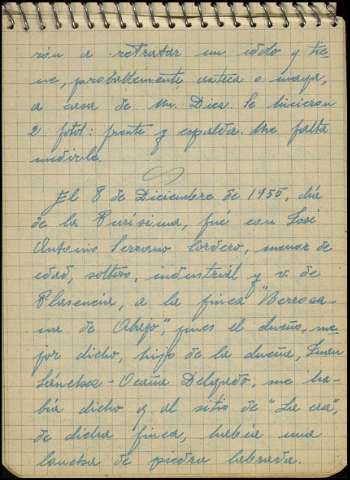 rón a retratar un ídolo y tie-
ne, probablemente, azteca o maya,
a casa de Mn. Diez. Se hicieron
2 fotos: frente y espalda. Me falta
medirlo.
El 8 de Diciembre de 1955, día
de la Purísima, fuí con José
Antonio Serrano Cordero, menor de
edad, soltero, industrial y v. de
Plasencia, a la finca "Berroca-
na de Abajo", pues el dueño, me-
jor dicho, hijo de la dueña, Juan
Sánchez-Ocaña Delgado, me ha-
bía dicho q. al sitio de "La era",
de dicha finca, había una
lancha de piedra labrada.